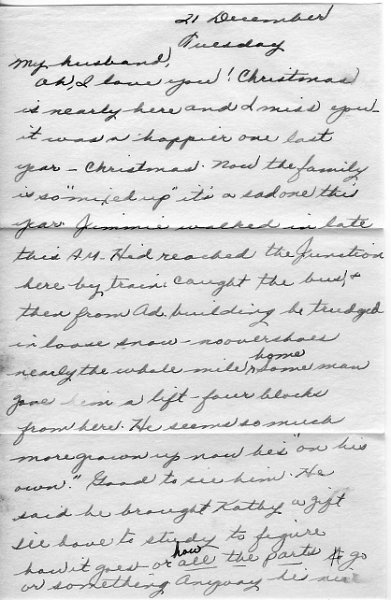 21 December
Tuesday
My husband,
Oh, I love you! Christmas
is nearly here and I miss you -
it was a happier one last
year - Christmas. Now the family
is so "mixed up" it's a sad one this
year. Jimmie walked in late
this A.M. He'd reached the Junction
here by train. Caught the bus, &
then from Ad. building he trudged
in loose snow - no overshoes
nearly the whole mile home
& some man
gave him a lift - four blocks
from here. He seems so much
more grown up now he's "on his
own." Good to see him. He
said he brought Kathy a gift
I'll have to study to figure
how it goes or how all the parts go
or something. Anyway he's